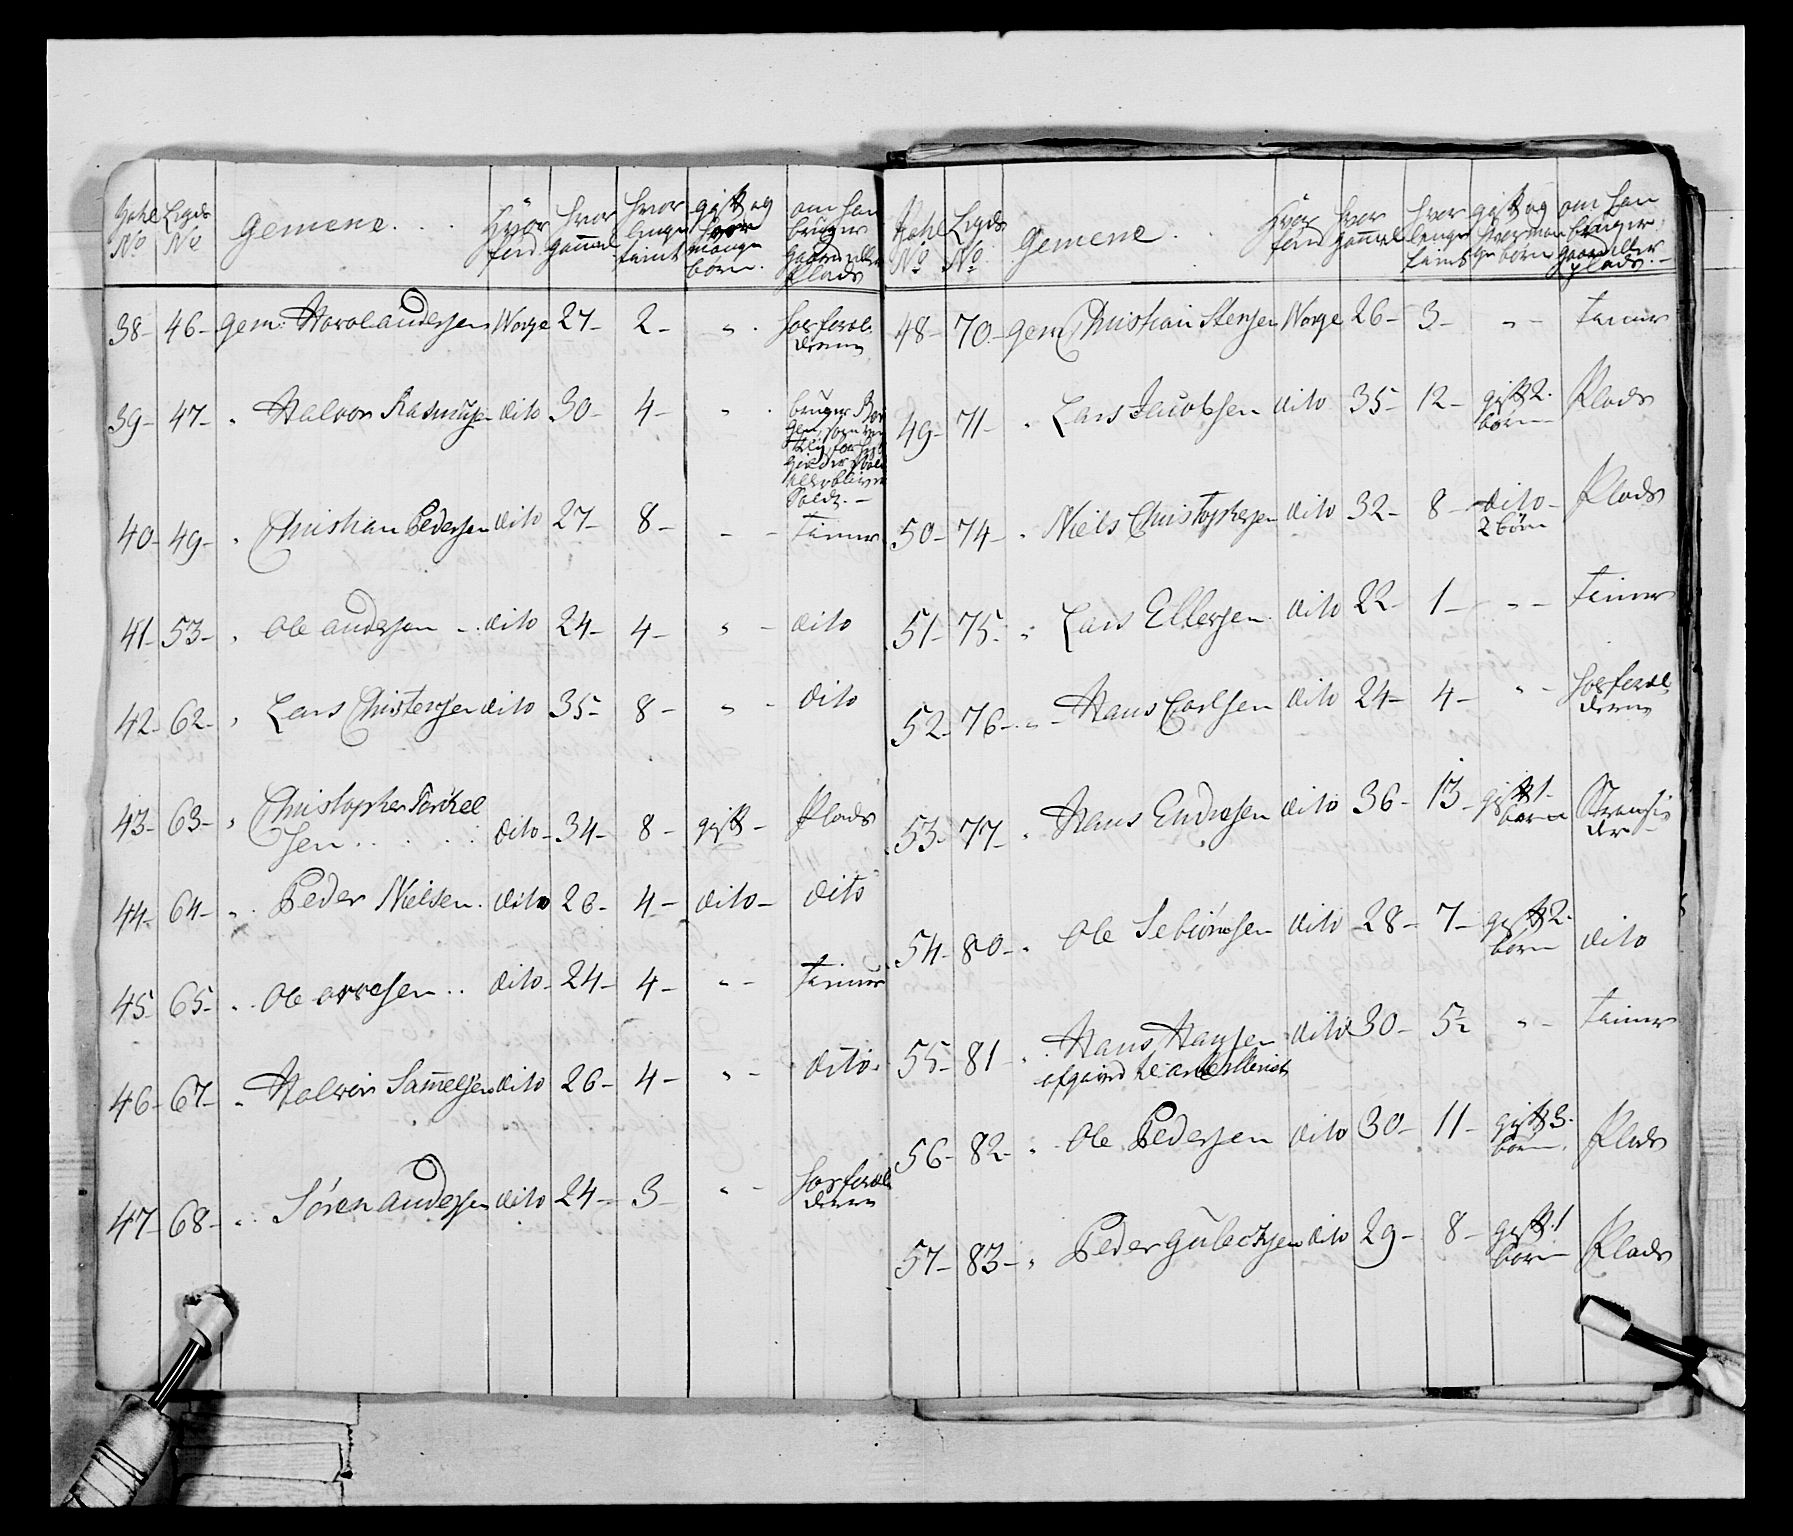 Gemene . . .
Hvor
fød
hvor
gammel
hvor
længe
tient
gift og
hvor
mange
børn.
om han
bruger
gaard eller
Plads
38- 46- Gem: Harol andersen Norge 27- 2- " . hos foræl
drene
39- 47- " Halvor Rasmusen dito 30- 4- " .
bruger
Soldt. -
40- 49- " Christian Pedersen dito 27- 8- - - tiener
41- 53- " Ole andersen - . dito 24- 4- " - dito
42- 62- " Lars Christensen dito 35- 8- " - dito
43- 63- " Christopher Torikel
sen . . . . dito- 34- 8- gift- Plads
44- 64- " . Peder Nielsen . dito 26- 4- dito- dito
45- 65- " . Ole arvesen . . dito- 24- 4- " - tiener
46- 67- " Halvor Samelsen dito 26- 4- " - dito.
47- 68- " . Søren andersen dito 24- 3- " - hos foræl
drene
No
Gemene . .
Hvor
fød
hvor
gammel
hvor
længe
tient
gift og
hvor man
ge børn
om han
bruger
gaard eller
plads. -
48- 70- Gem Christian Stensen Norge 26- 3- " - tiener
49- 71- " Lars Jacobsen dito 35- 12- gift 2. Plads
børn
50- 74- " Niels Christophersen dito 32- 8- dito- Plads
2 børn
51- 75- " Lars Ellersen dito 22- 1- " - tiener
52- 76- " - Hans Carlsen dito 24- 4- " - hos foræl
drene
53- 77- " Hans Endresen dito 36- 13- gift 1- Strensi
barn der -
54- 80- " Ole Sebiørnsen dito 28- 7- gift 2- dito
børn
55- 81- " Hans Hansen dito 30- 5½ " - tiener
afgaaed
56- 82- " Ole Pedersen dito 30- 11- gift 3. Plads
børn.
57- 83- " Peder Gulecksen dito 29- 8- gift. 1 Plads
barn